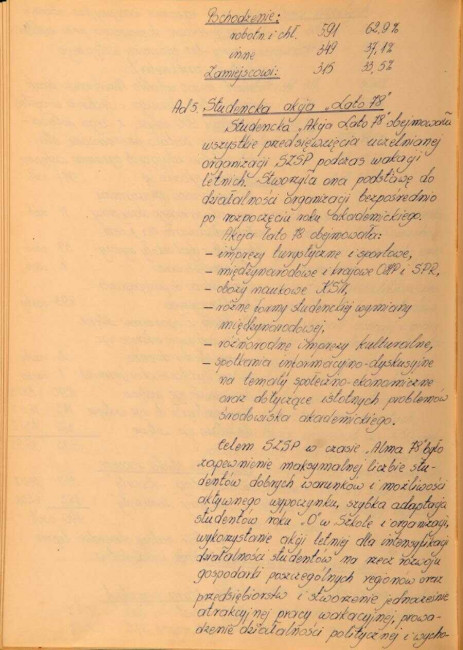 Pochodzenie:
robotn. i chł. 591 62,9%
inne 349 37,1%
Zamiejscowi: 315 33,5%
Ad 5. Studencka akcja „Lato 78"
Studencka „Akcja Lato 78" obejmowała
wszystkie przedsięwzięcia uczelnianej
organizacji SZSP podczas wakacji
letnich. Stworzyła ona podstawę do
działalności organizacji bezpośrednio
po rozpoczęciu roku akademickiego.
Akcja lato 78 obejmowała:
– imprezy turystyczne i sportowe,
– międzynarodowe i krajowe OHP i SPR,
– obozy naukowe KSN,
– różne formy studenckiej wymiany
międzynarodowej,
– różnorodne imprezy kulturalne,
– spotkania informacyjno-dyskusyjne
na tematy społeczno-ekonomiczne
oraz dotyczące istotnych problemów
środowiska akademickiego.
Celem SZSP w czasie „Alma 78" było
zapewnienie maksymalnej liczbie stu-
dentów dobrych warunków i możliwości
aktywnego wypoczynku, szybka adaptacja
studentów roku „0" w Szkole i organizacji,
wykorzystanie akcji letniej dla intensyfikacji
działalności studentów na rzecz rozwoju
gospodarki poszczególnych regionów oraz
przedsiębiorstw i stworzenie jednocześnie
atrakcyjnej pracy wakacyjnej, prowa-
dzenie działalności politycznej i wycho-